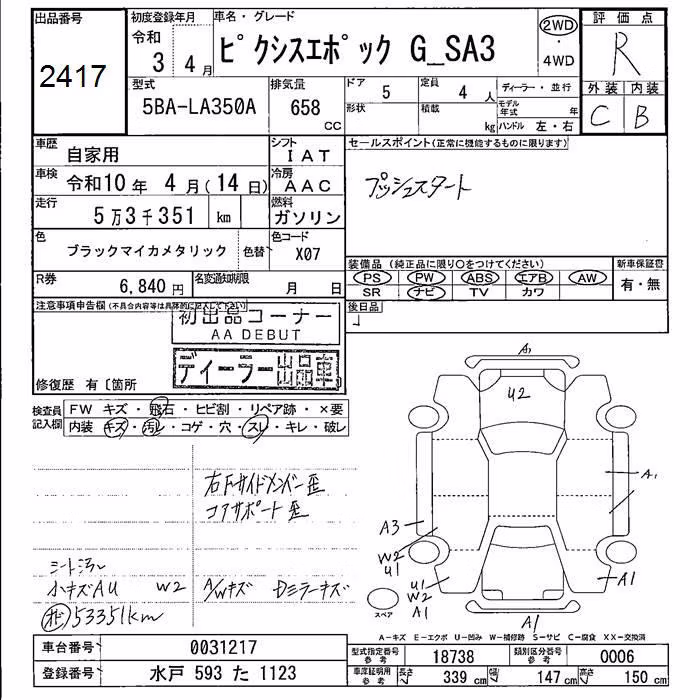 出品番号
2417
初度登録年月
令和
3 4月
車名・グレード
ピクシスエポック G_SA3
2WD
・
4WD
評価点
R
外装 内装
C B
型式
5BA-LA350A
排気量
658
CC
ドア 5
形状
定員 4 人
積載 kg
ディーラー・並行
モデル年式 年
ハンドル 左・右
車歴 自家用
シフト IAT
車検 令和10年 4月(14日)
冷房 AAC
走行 5万3千351 km
燃料 ガソリン
色 ブラックマイカメタリック 色替
色コード X07
R券 6,840円
名変通知期限 月 日
セールスポイント(正常に機能するものに限ります)
プッシュスタート
装備品(純正品に限り○をつけてください)
PS PW ABS エアB AW
SR ナビ TV カワ
新車保証書
有・無
後日品
注意事項申告欄(不具合内容等は具体的に記入して下さい)
初出品コーナー
AA DEBUT
ディーラー出品車
修復歴 有〔箇所
検査員
記入欄
FW キズ・飛石・ヒビ割・リペア跡・×要
内装 キズ・汚レ・コゲ・穴・スレ・キレ・破レ
右Fサイドメンバー歪
コアサポート歪
シート汚レ
小キズAU W2 A/Wキズ Dミラーキズ
53351km
A1
U2
A1
A3
W2
U1
U1
W2
A1
A1
A1
スペア
A−キズ E−エクボ U−凹み W−補修跡 S−サビ C−腐食 XX−交換済
車台番号 0031217
登録番号 水戸 593 た 1123
型式指定番号
参考
18738
類別区分番号
参考
0006
車庫証明用
参考
長さ 339 cm 幅 147 cm 高さ 150 cm